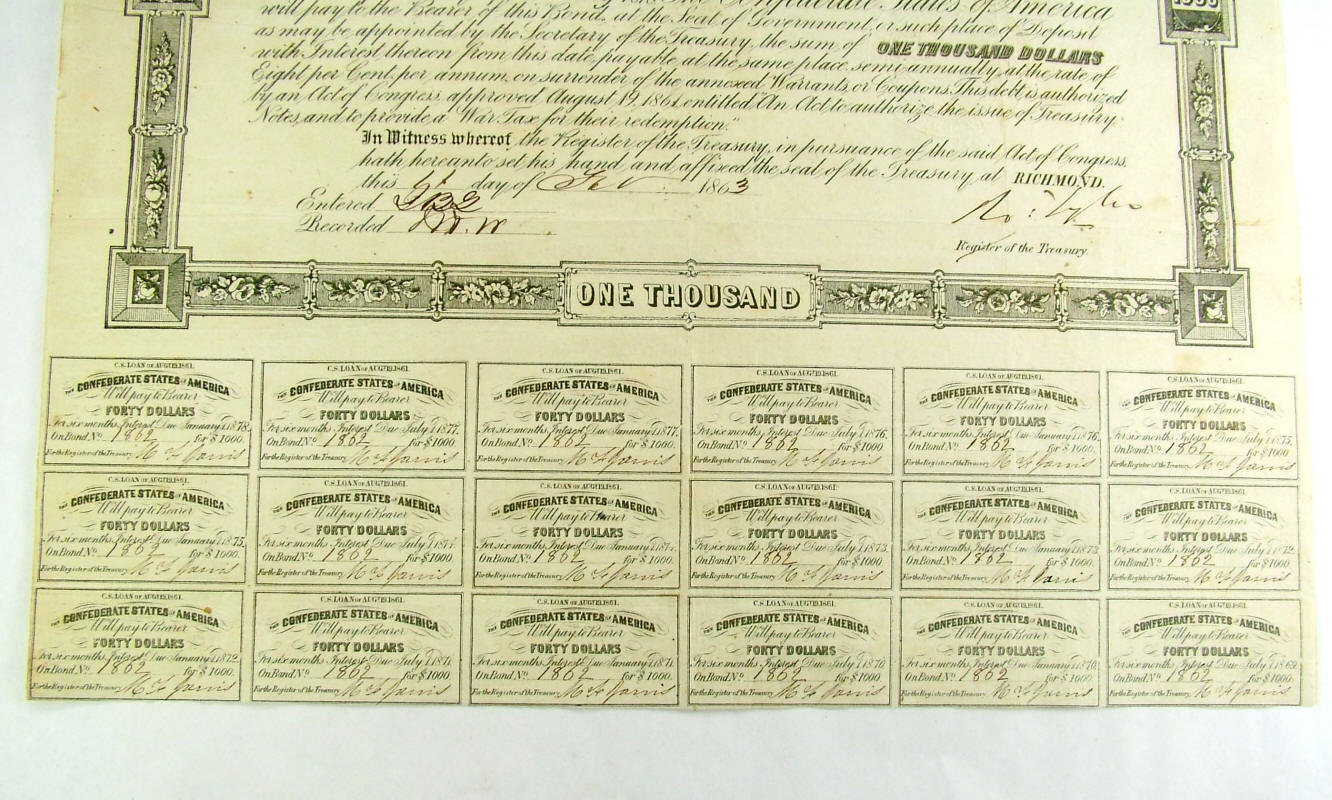 The Confederate States of America
will pay to the Bearer of this Bond, at the Seat of Government, or such place of Deposit
as may be appointed by the Secretary of the Treasury, the sum of ONE THOUSAND DOLLARS
with Interest thereon from this date, payable at the same place, semi-annually, at the rate of
Eight per Cent. per annum, on surrender of the annexed Warrants, or Coupons. This debt is authorized
by an Act of Congress, approved August 19, 1861, entitled "An Act, to authorize the issue of Treasury
Notes, and to provide a War Tax for their redemption."
In Witness whereof, the Register of the Treasury, in pursuance of the said Act of Congress,
hath hereunto set his hand and affixed the seal of the Treasury, at RICHMOND.
this day of Feb 1863
Entered
Recorded
Ro: Tyler
Register of the Treasury.
1000
ONE THOUSAND
C.S. LOAN OF AUGT 19, 1861.
THE CONFEDERATE STATES OF AMERICA
Will pay to Bearer
FORTY DOLLARS
For six months Interest Due January 1, 1878.
On Bond No. 1862 for $1000.
For the Register of the Treasury
C.S. LOAN OF AUGT 19, 1861.
THE CONFEDERATE STATES OF AMERICA
Will pay to Bearer
FORTY DOLLARS
For six months Interest Due July 1, 1877.
On Bond No. 1862 for $1000.
For the Register of the Treasury
C.S. LOAN OF AUGT 19, 1861.
THE CONFEDERATE STATES OF AMERICA
Will pay to Bearer
FORTY DOLLARS
For six months Interest Due January 1, 1877.
On Bond No. 1862 for $1000.
For the Register of the Treasury
C.S. LOAN OF AUGT 19, 1861.
THE CONFEDERATE STATES OF AMERICA
Will pay to Bearer
FORTY DOLLARS
For six months Interest Due July 1, 1876.
On Bond No. 1862 for $1000.
For the Register of the Treasury
C.S. LOAN OF AUGT 19, 1861.
THE CONFEDERATE STATES OF AMERICA
Will pay to Bearer
FORTY DOLLARS
For six months Interest Due January 1, 1876.
On Bond No. 1862 for $1000.
For the Register of the Treasury
C.S. LOAN OF AUGT 19, 1861.
THE CONFEDERATE STATES OF AMERICA
Will pay to Bearer
FORTY DOLLARS
For six months Interest Due July 1, 1875.
On Bond No. 1862 for $1000.
For the Register of the Treasury
C.S. LOAN OF AUGT 19, 1861.
THE CONFEDERATE STATES OF AMERICA
Will pay to Bearer
FORTY DOLLARS
For six months Interest Due January 1, 1875.
On Bond No. 1862 for $1000.
For the Register of the Treasury
C.S. LOAN OF AUGT 19, 1861.
THE CONFEDERATE STATES OF AMERICA
Will pay to Bearer
FORTY DOLLARS
For six months Interest Due July 1, 1874.
On Bond No. 1862 for $1000
For the Register of the Treasury
C.S. LOAN OF AUGT 19, 1861.
THE CONFEDERATE STATES OF AMERICA
Will pay to Bearer
FORTY DOLLARS
For six months Interest Due January 1, 1874.
On Bond No. 1862 for $1000
For the Register of the Treasury
C.S. LOAN OF AUGT 19, 1861.
THE CONFEDERATE STATES OF AMERICA
Will pay to Bearer
FORTY DOLLARS
For six months Interest Due July 1, 1873.
On Bond No. 1862 for $1000
For the Register of the Treasury
C.S. LOAN OF AUGT 19, 1861.
THE CONFEDERATE STATES OF AMERICA
Will pay to Bearer
FORTY DOLLARS
For six months Interest Due January 1, 1873.
On Bond No. 1862 for $1000.
For the Register of the Treasury
C.S. LOAN OF AUGT 19, 1861.
THE CONFEDERATE STATES OF AMERICA
Will pay to Bearer
FORTY DOLLARS
For six months Interest Due July 1, 1872.
On Bond No. 1862 for $1000.
For the Register of the Treasury
C.S. LOAN OF AUGT 19, 1861.
THE CONFEDERATE STATES OF AMERICA
Will pay to Bearer
FORTY DOLLARS
For six months Interest Due January 1, 1872.
On Bond No. 1862 for $1000.
For the Register of the Treasury
C.S. LOAN OF AUGT 19, 1861.
THE CONFEDERATE STATES OF AMERICA
Will pay to Bearer
FORTY DOLLARS
For six months Interest Due July 1, 1871.
On Bond No. 1862 for $1000.
For the Register of the Treasury
C.S. LOAN OF AUGT 19, 1861.
THE CONFEDERATE STATES OF AMERICA
Will pay to Bearer
FORTY DOLLARS
For six months Interest Due January 1, 1871.
On Bond No. 1862 for $1000.
For the Register of the Treasury
C.S. LOAN OF AUGT 19, 1861.
THE CONFEDERATE STATES OF AMERICA
Will pay to Bearer
FORTY DOLLARS
For six months Interest Due July 1, 1870.
On Bond No. 1862 for $1000.
For the Register of the Treasury
C.S. LOAN OF AUGT 19, 1861.
THE CONFEDERATE STATES OF AMERICA
Will pay to Bearer
FORTY DOLLARS
For six months Interest Due January 1, 1870.
On Bond No. 1862 for $1000.
For the Register of the Treasury
C.S. LOAN OF AUGT 19, 1861.
THE CONFEDERATE STATES OF AMERICA
Will pay to Bearer
FORTY DOLLARS
For six months Interest Due July 1, 1869.
On Bond No. 1862 for $1000.
For the Register of the Treasury